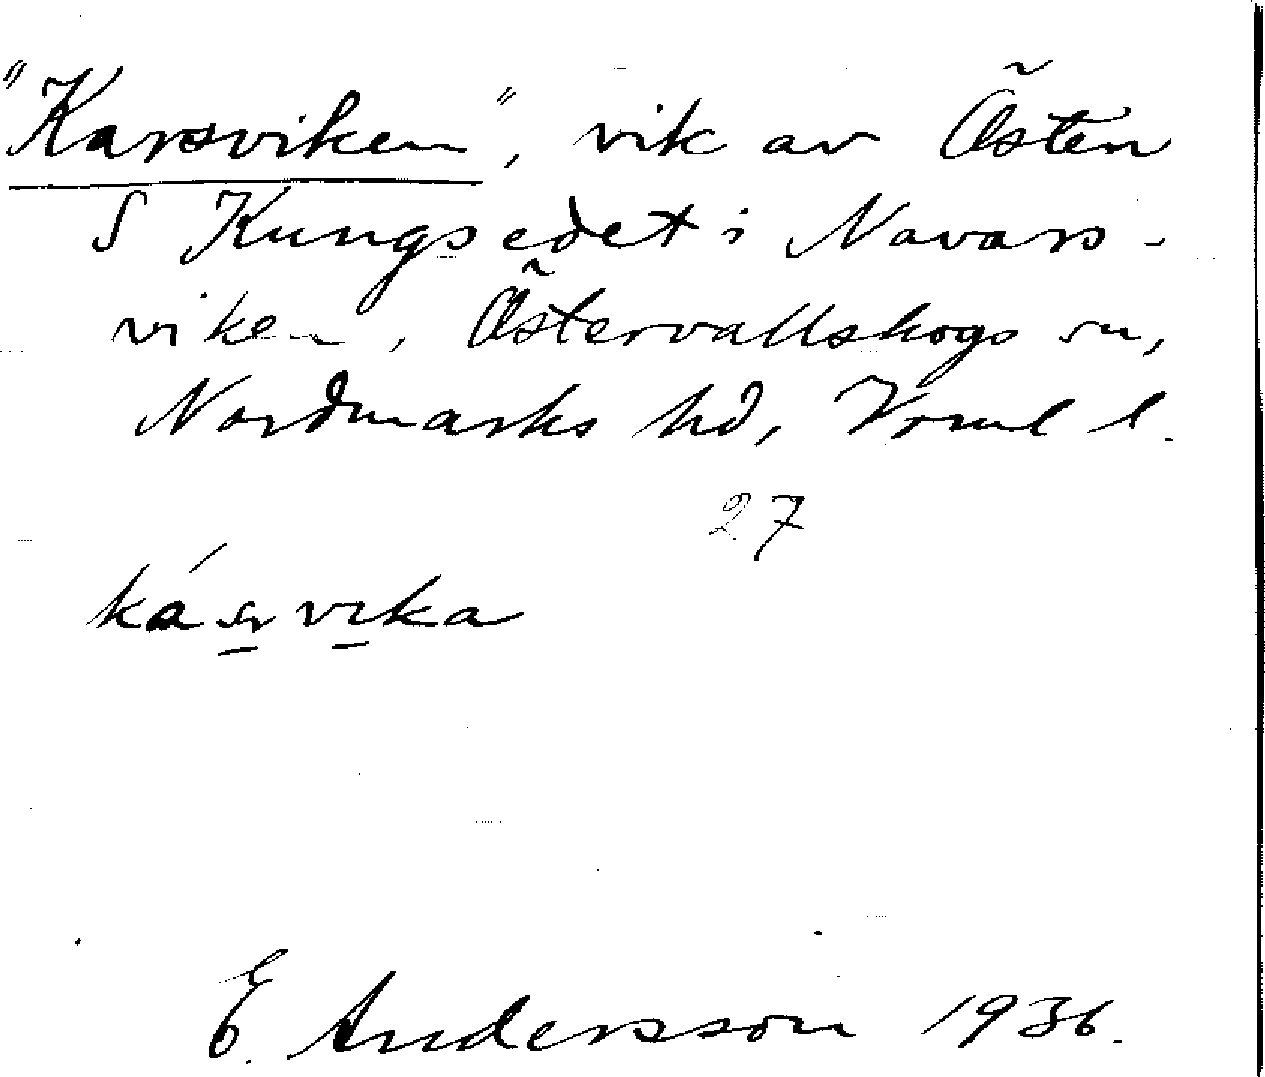 "Karsviken", vik av Östen
S Kungsedet i Navars-
viken, Östervallskogs sn,
Nordmarks hd, Vrml l.
27
ká sr vika
E. Andersson 1936.